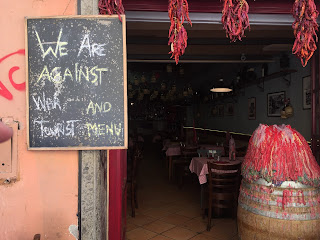 We Are
Against
War and
Tourist Menu